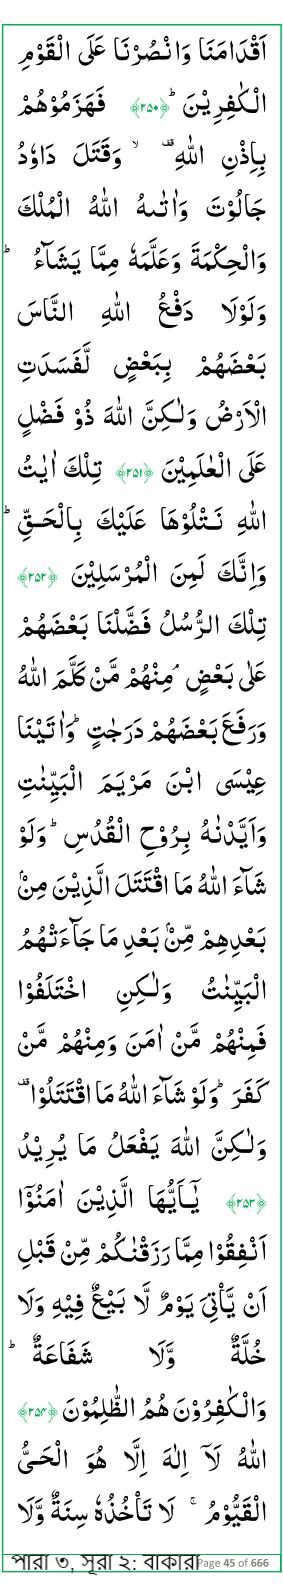 اَقْدَامَنَا وَانْصُرْنَا عَلَى الْقَوْمِ
الْكٰفِرِيْنَ ؕ ﴿۲۵۰﴾ فَهَزَمُوْهُمْ
بِاِذْنِ اللّٰهِ ۟ۙ وَقَتَلَ دَاوٗدُ
جَالُوْتَ وَاٰتٰىهُ اللّٰهُ الْمُلْكَ
وَالْحِكْمَةَ وَعَلَّمَهٗ مِمَّا يَشَآءُ ؕ
وَلَوْلَا دَفْعُ اللّٰهِ النَّاسَ
بَعْضَهُمْ بِبَعْضٍ لَّفَسَدَتِ
الْاَرْضُ وَلٰكِنَّ اللّٰهَ ذُوْ فَضْلٍ
عَلَى الْعٰلَمِيْنَ ﴿۲۵۱﴾ تِلْكَ اٰيٰتُ
اللّٰهِ نَتْلُوْهَا عَلَيْكَ بِالْحَـقِّ ؕ
وَاِنَّكَ لَمِنَ الْمُرْسَلِيْنَ ﴿۲۵۲﴾
تِلْكَ الرُّسُلُ فَضَّلْنَا بَعْضَهُمْ
عَلٰى بَعْضٍ ۘ مِنْهُمْ مَّنْ كَلَّمَ اللّٰهُ
وَرَفَعَ بَعْضَهُمْ دَرَجٰتٍ ؕ وَاٰتَيْنَا
عِيْسَى ابْنَ مَرْيَمَ الْبَيِّنٰتِ
وَاَيَّدْنٰهُ بِرُوْحِ الْقُدُسِ ؕ وَلَوْ
شَآءَ اللّٰهُ مَا اقْتَتَلَ الَّذِيْنَ مِنْۢ
بَعْدِهِمْ مِّنْۢ بَعْدِ مَا جَآءَتْهُمُ
الْبَيِّنٰتُ وَلٰكِنِ اخْتَلَفُوْا
فَمِنْهُمْ مَّنْ اٰمَنَ وَمِنْهُمْ مَّنْ
كَفَرَ ؕ وَلَوْ شَآءَ اللّٰهُ مَا اقْتَتَلُوْا ۟
وَلٰكِنَّ اللّٰهَ يَفْعَلُ مَا يُرِيْدُ
﴿۲۵۳﴾ يٰٓـاَيُّهَا الَّذِيْنَ اٰمَنُوْٓا
اَنْفِقُوْا مِمَّا رَزَقْنٰكُمْ مِّنْ قَبْلِ
اَنْ يَّاْتِىَ يَوْمٌ لَّا بَيْعٌ فِيْهِ وَلَا
خُلَّةٌ وَّلَا شَفَاعَةٌ ؕ
وَالْكٰفِرُوْنَ هُمُ الظّٰلِمُوْنَ ﴿۲۵۴﴾
اللّٰهُ لَآ اِلٰهَ اِلَّا هُوَ الْحَىُّ
الْقَيُّوْمُ ۚ لَا تَاْخُذُهٗ سِنَةٌ وَّلَا
পারা ৩, সূরা ২: বাকারা Page 45 of 666